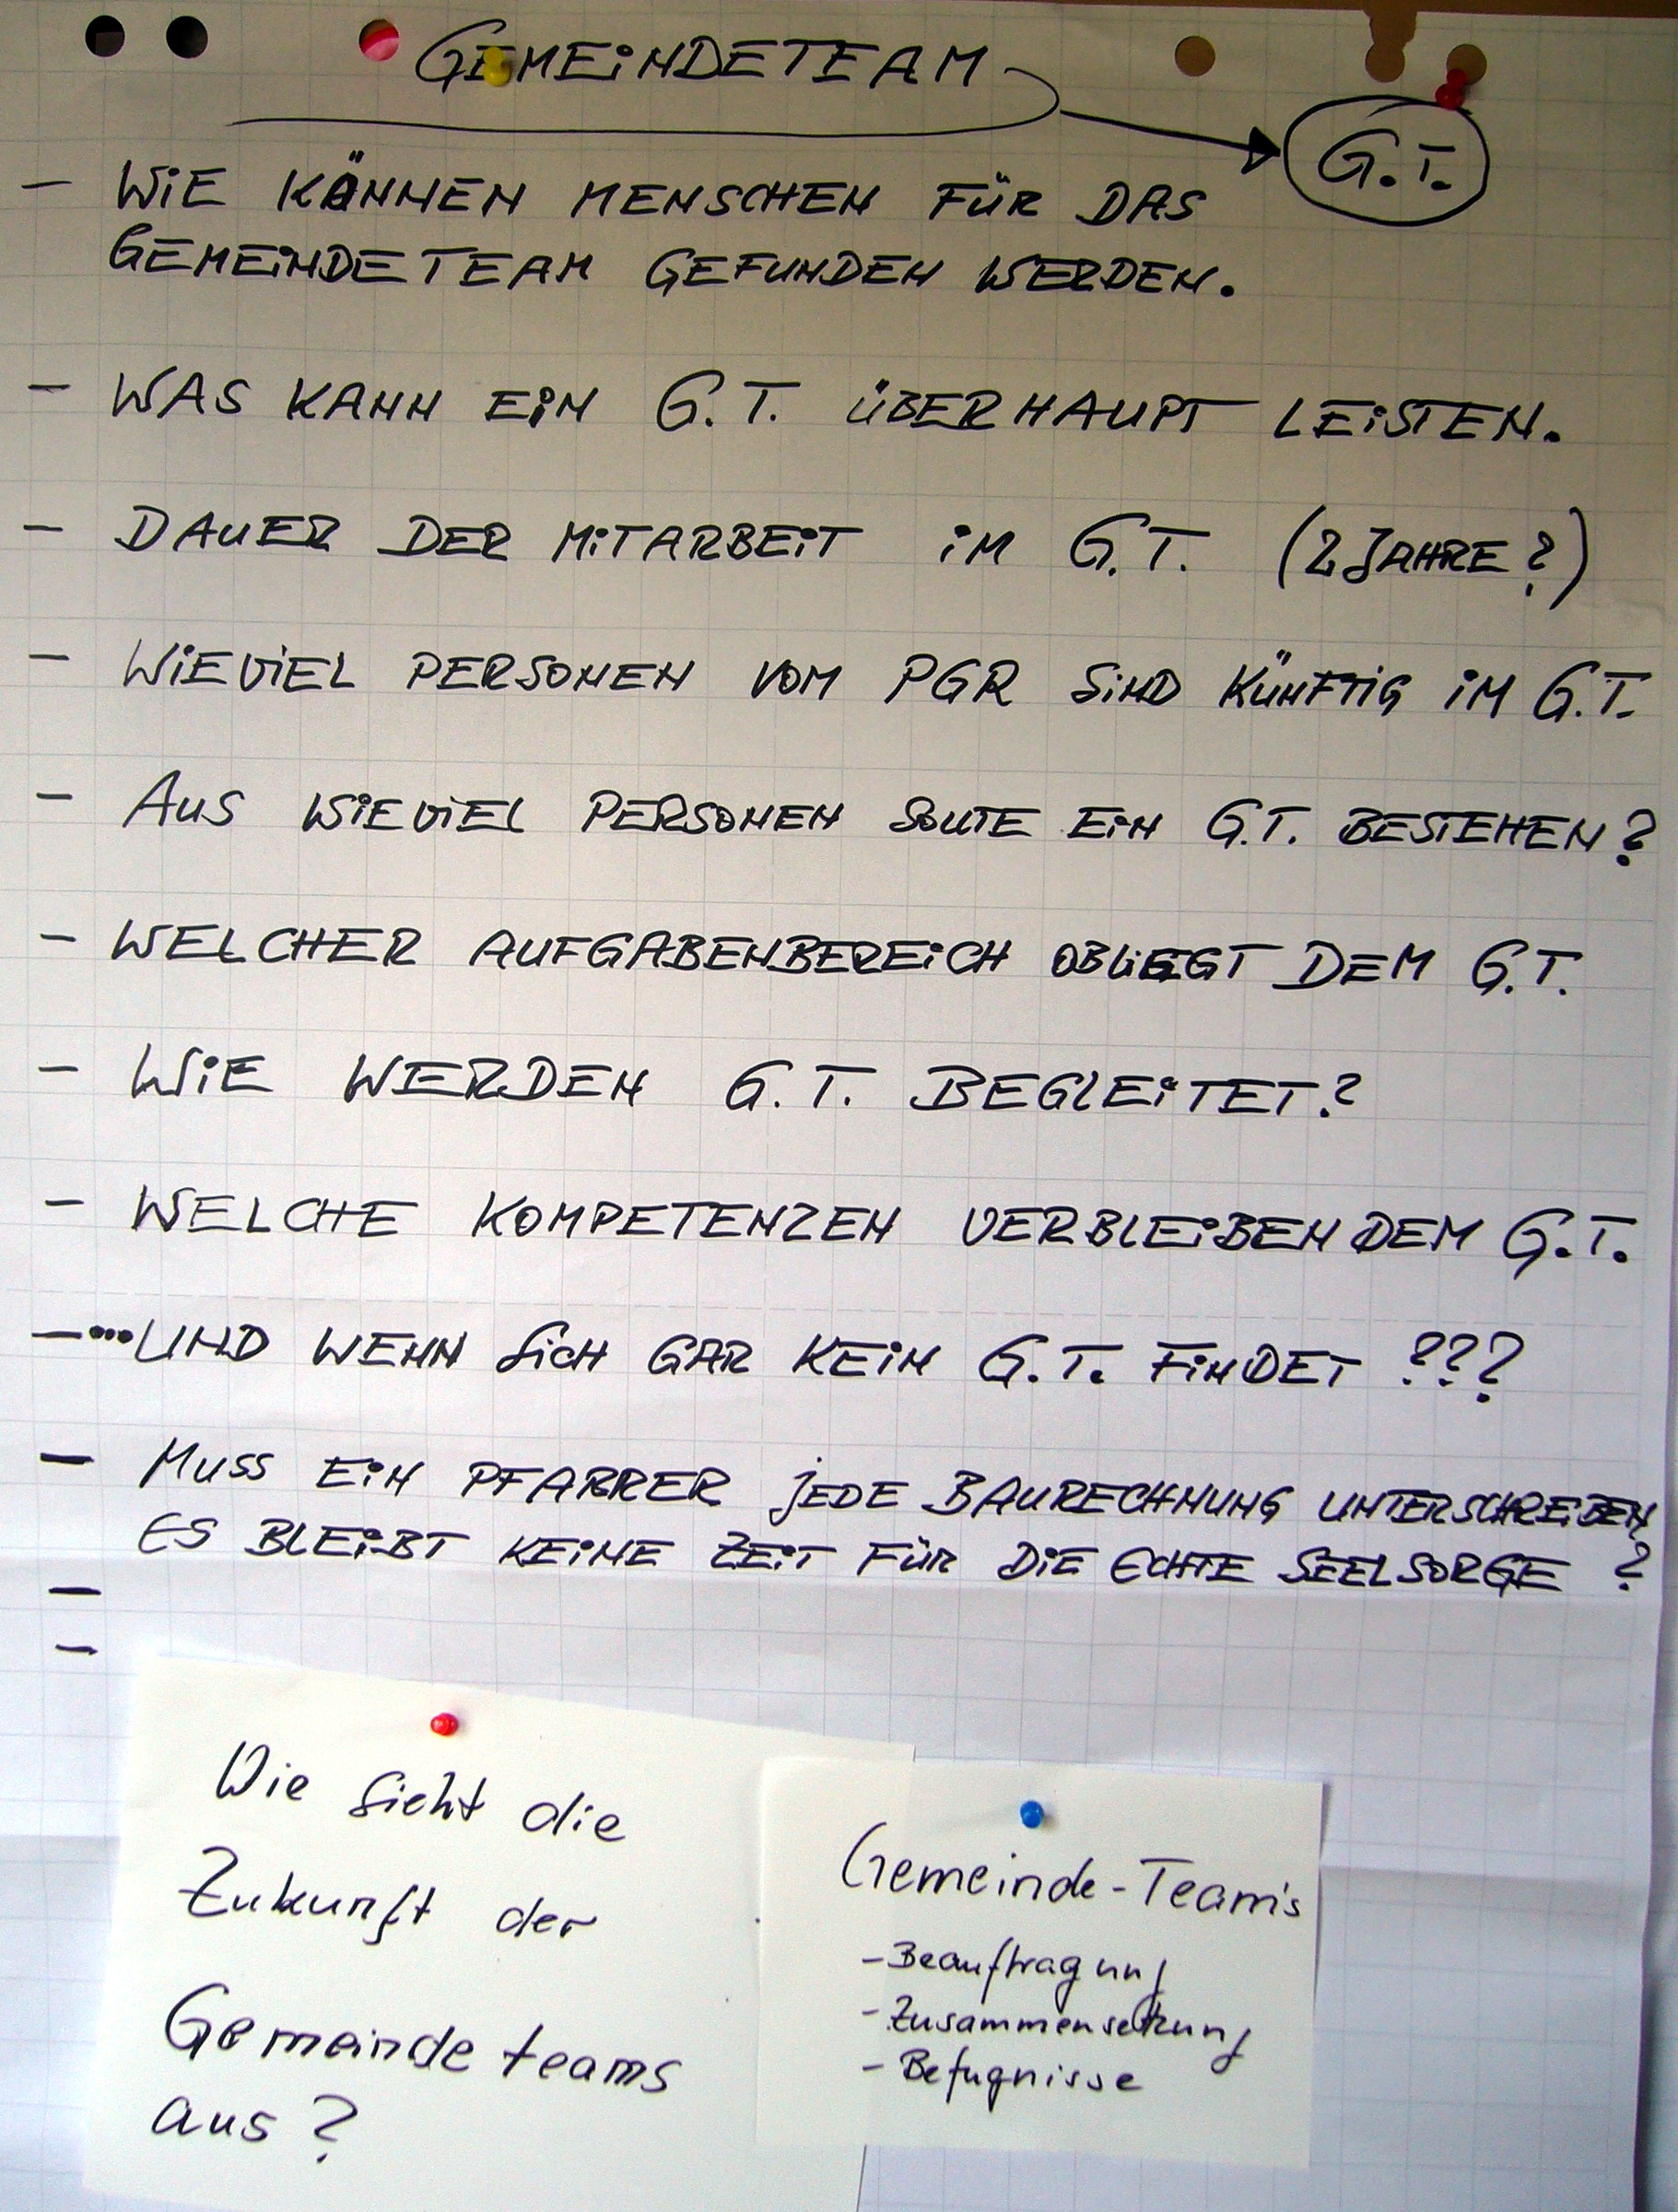 GEMEINDETEAM
G.T.
- WIE KÖNNEN MENSCHEN FÜR DAS
GEMEINDETEAM GEFUNDEN WERDEN.
- WAS KANN EIN G.T. ÜBERHAUPT LEISTEN.
- DAUER DER MITARBEIT IM G.T. (2 JAHRE?)
- WIEVIEL PERSONEN VOM PGR SIND KÜNFTIG IM G.T.
- AUS WIEVIEL PERSONEN SOLLTE EIN G.T. BESTEHEN?
- WELCHER AUFGABENBEREICH OBLIEGT DEM G.T.
- WIE WERDEN G.T. BEGLEITET?
- WELCHE KOMPETENZEN VERBLEIBEN DEM G.T.
- ...UND WENN SICH GAR KEIN G.T. FINDET ???
- MUSS EIN PFARRER JEDE BAURECHNUNG UNTERSCHREIBEN
ES BLEIBT KEINE ZEIT FÜR DIE ECHTE SEELSORGE ?
-
-
Wie sieht die
Zukunft der
Gemeindeteams
aus?
Gemeinde-Team's
- Beauftragung
- Zusammensetzung
- Befugnisse